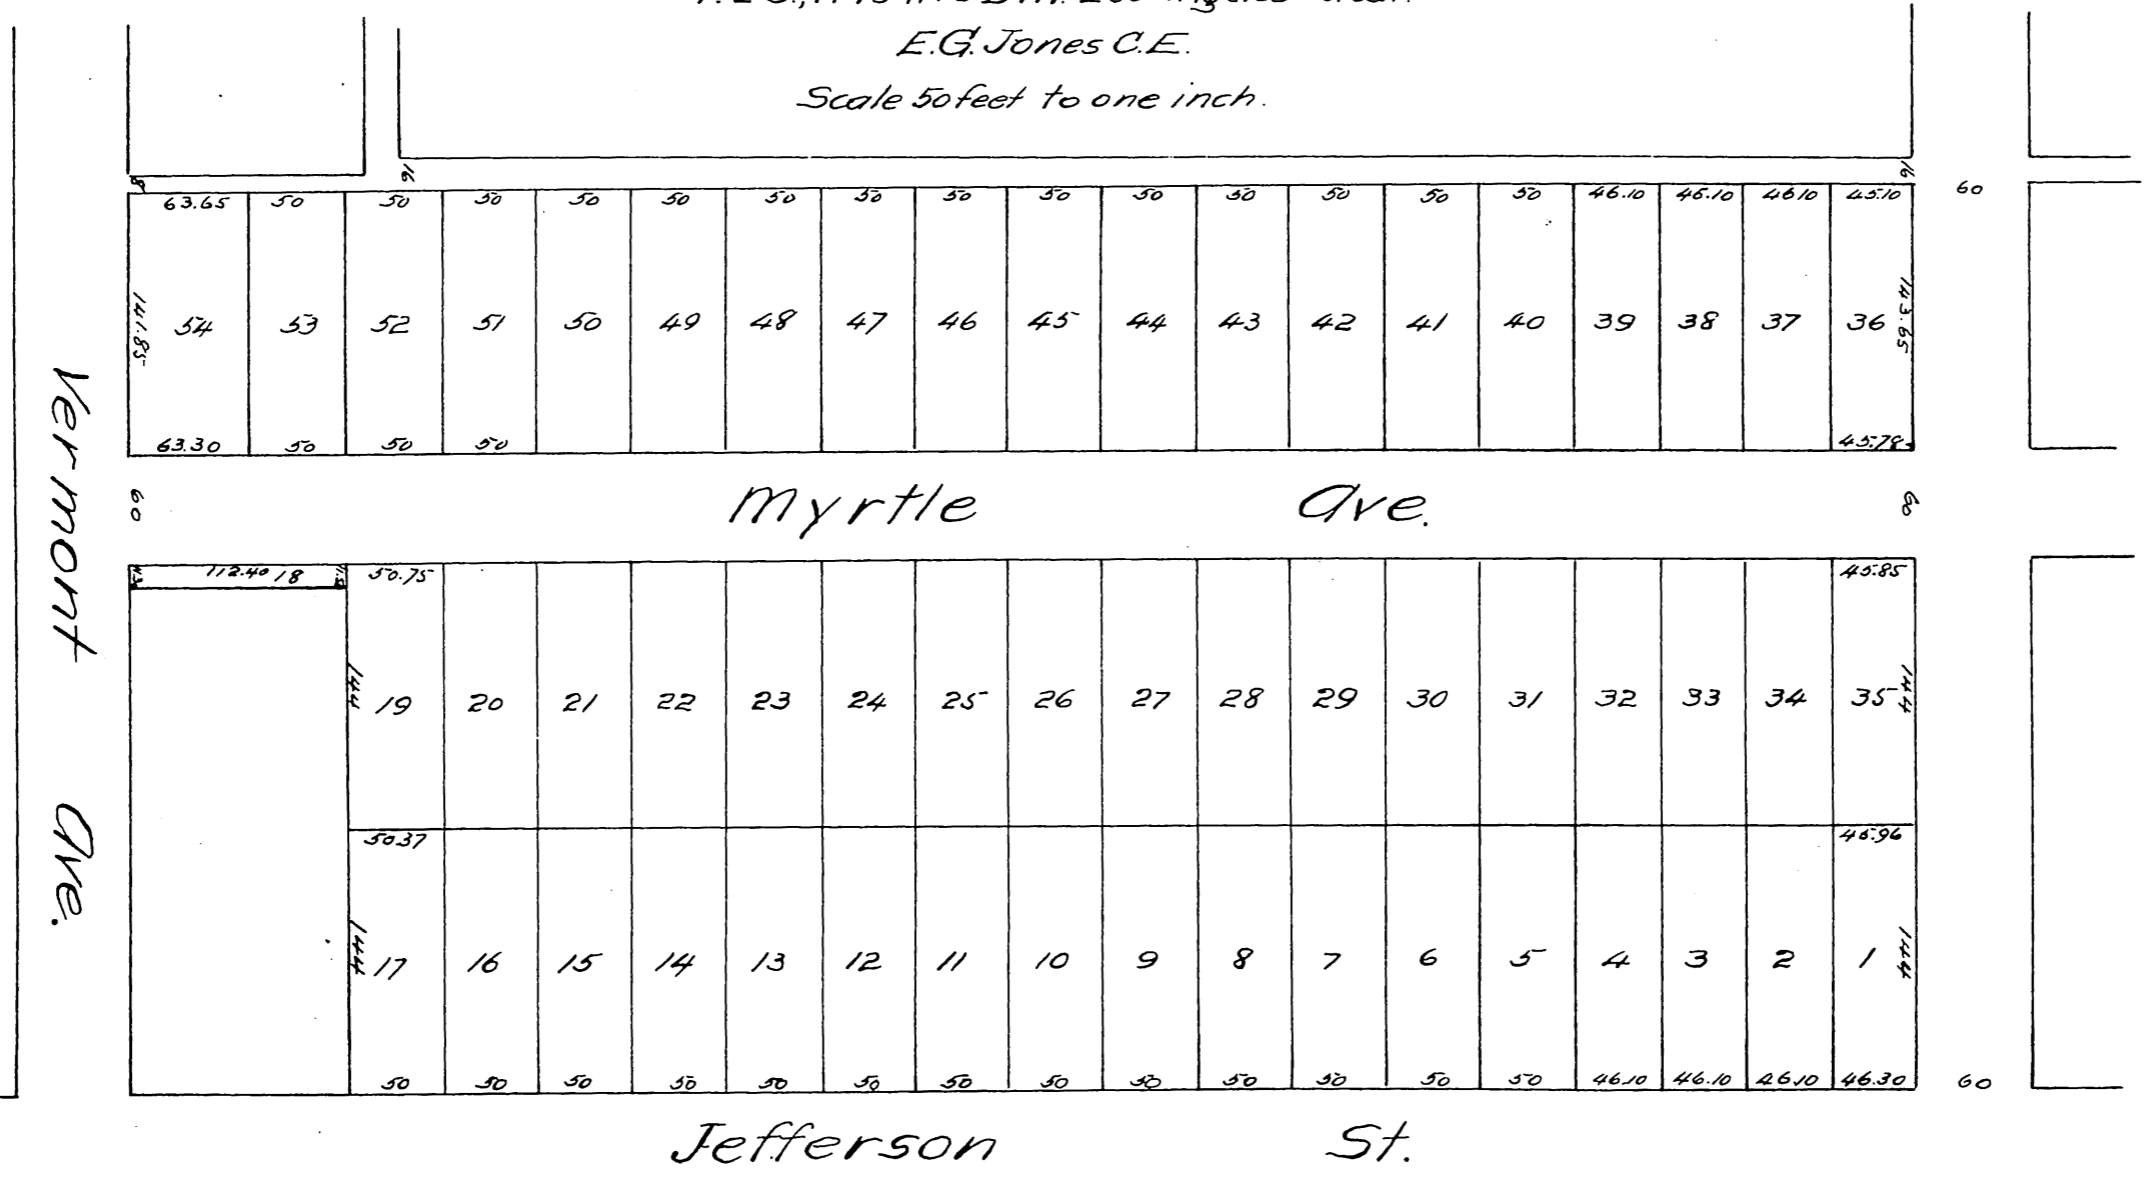 E.G. Jones C.E.
Scale 50 feet to one inch.
8
16
16
63.65 50 50 50 50 50 50 50 50 50 50 50 50 50 50 46.10 46.10 46.10 45.10
60
141.85
54 53 52 51 50 49 48 47 46 45 44 43 42 41 40 39 38 37 36
143.65
63.30 50 50 50
45.78
Vermont Ave.
60
Myrtle Ave.
60
112.40 18
50.75
45.85
144
19 20 21 22 23 24 25 26 27 28 29 30 31 32 33 34 35
144
50.37
45.96
144
17 16 15 14 13 12 11 10 9 8 7 6 5 4 3 2 1
144
50 50 50 50 50 50 50 50 50 50 50 50 50 46.10 46.10 46.10 46.30
60
Jefferson St.